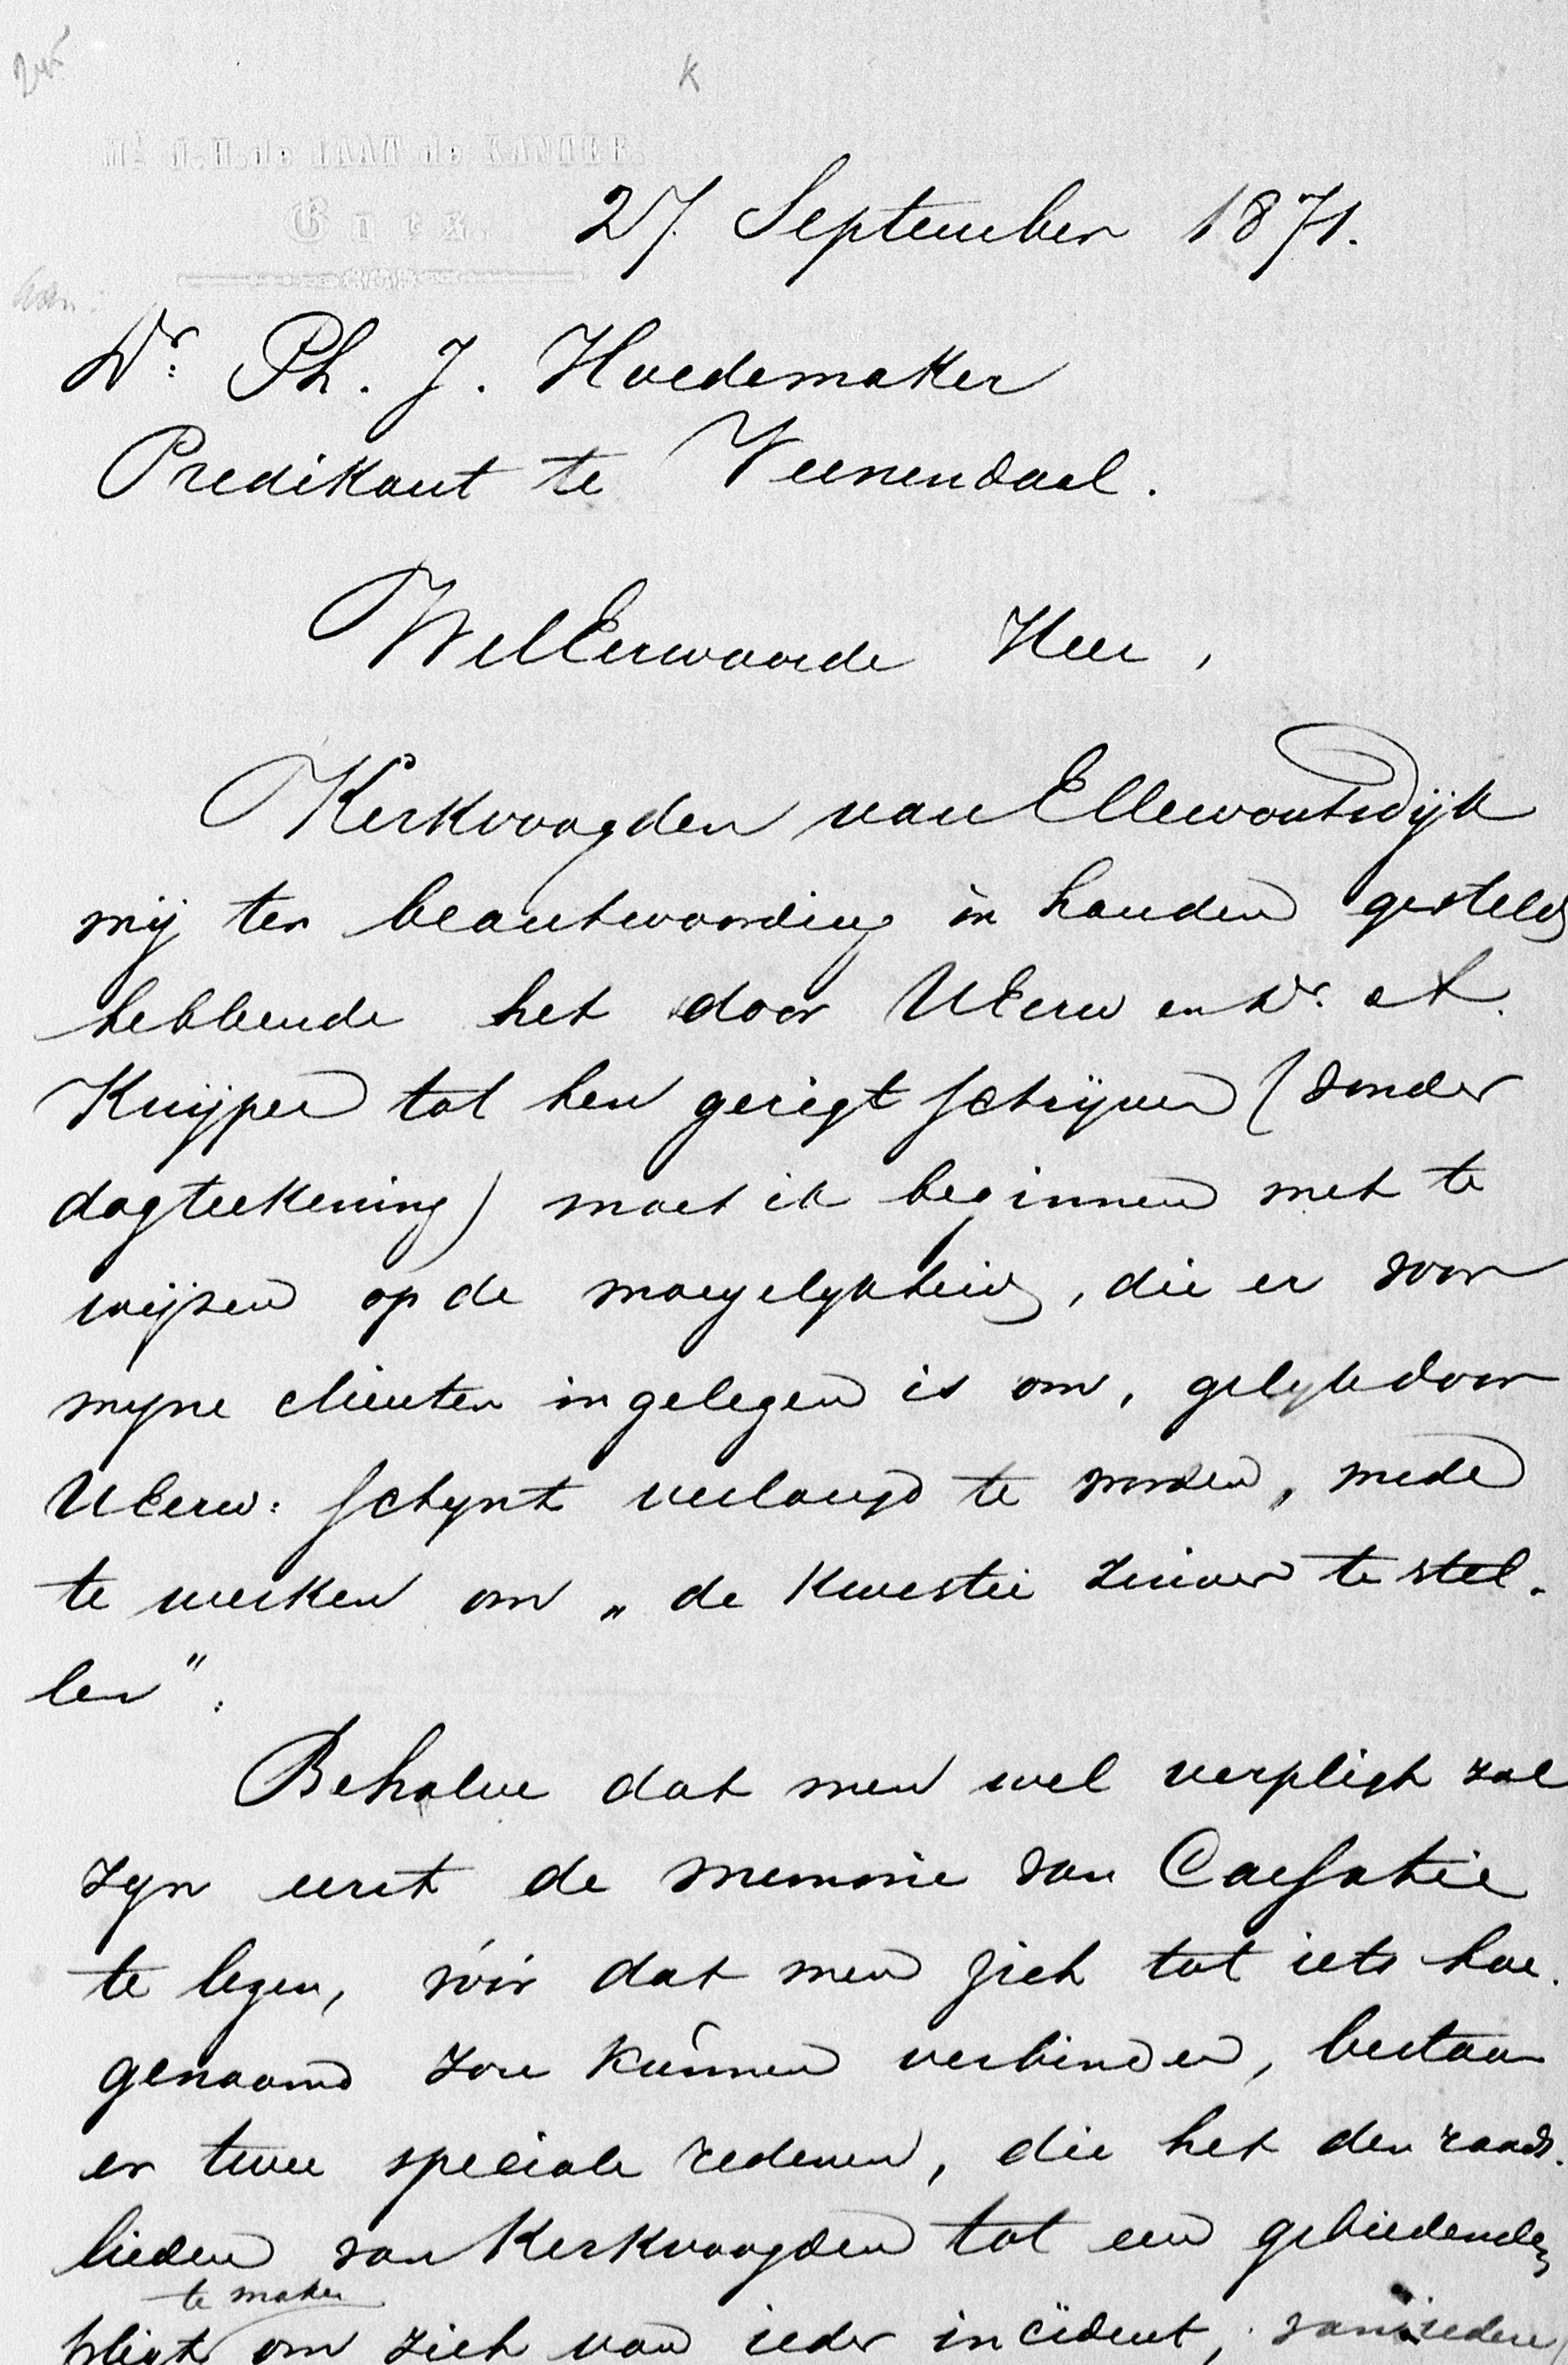 K
Goes.
27. September 1871.
Dr. Ph. J. Hoedemaker
Predikant te Veenendaal.
WelEerwaarde Heer,
Kerkvoogden van Ellewoutsdijk
mij ter beantwoording in handen gesteld
hebbende het door UEerw en Dr. A.
Kuijper tot hen gerigt schrijven (zonder
dagteekening) moet ik beginnen met te
wijzen op de moeyelykheid, die er voor
myne clienten in gelegen is om, gelyk door
UEerw: schynt verlangd te worden, mede
te werken om „de kwestie zuiver te stel-
len".
Behalve dat men wel verpligt zal
zyn eerst de memorie van Cassatie
te lezen, vóór dat men zich tot iets hoe-
genaamd zou kúnnen verbinden, bestaan
er twee speciale redenen, die het den raads-
lieden van Kerkvoogden tot een gebiedenden
te maken
pligt om zich van ieder incident, van iedere